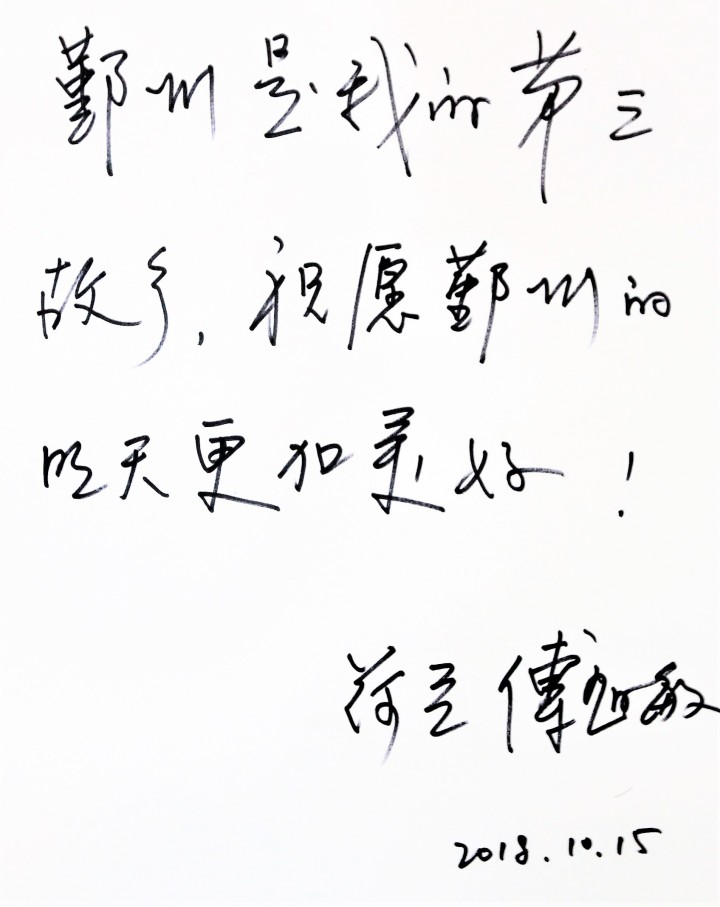 鄞州是我的第三
故乡,祝愿鄞州的
明天更加美好!
荷兰 傅旭敏
2018.10.15